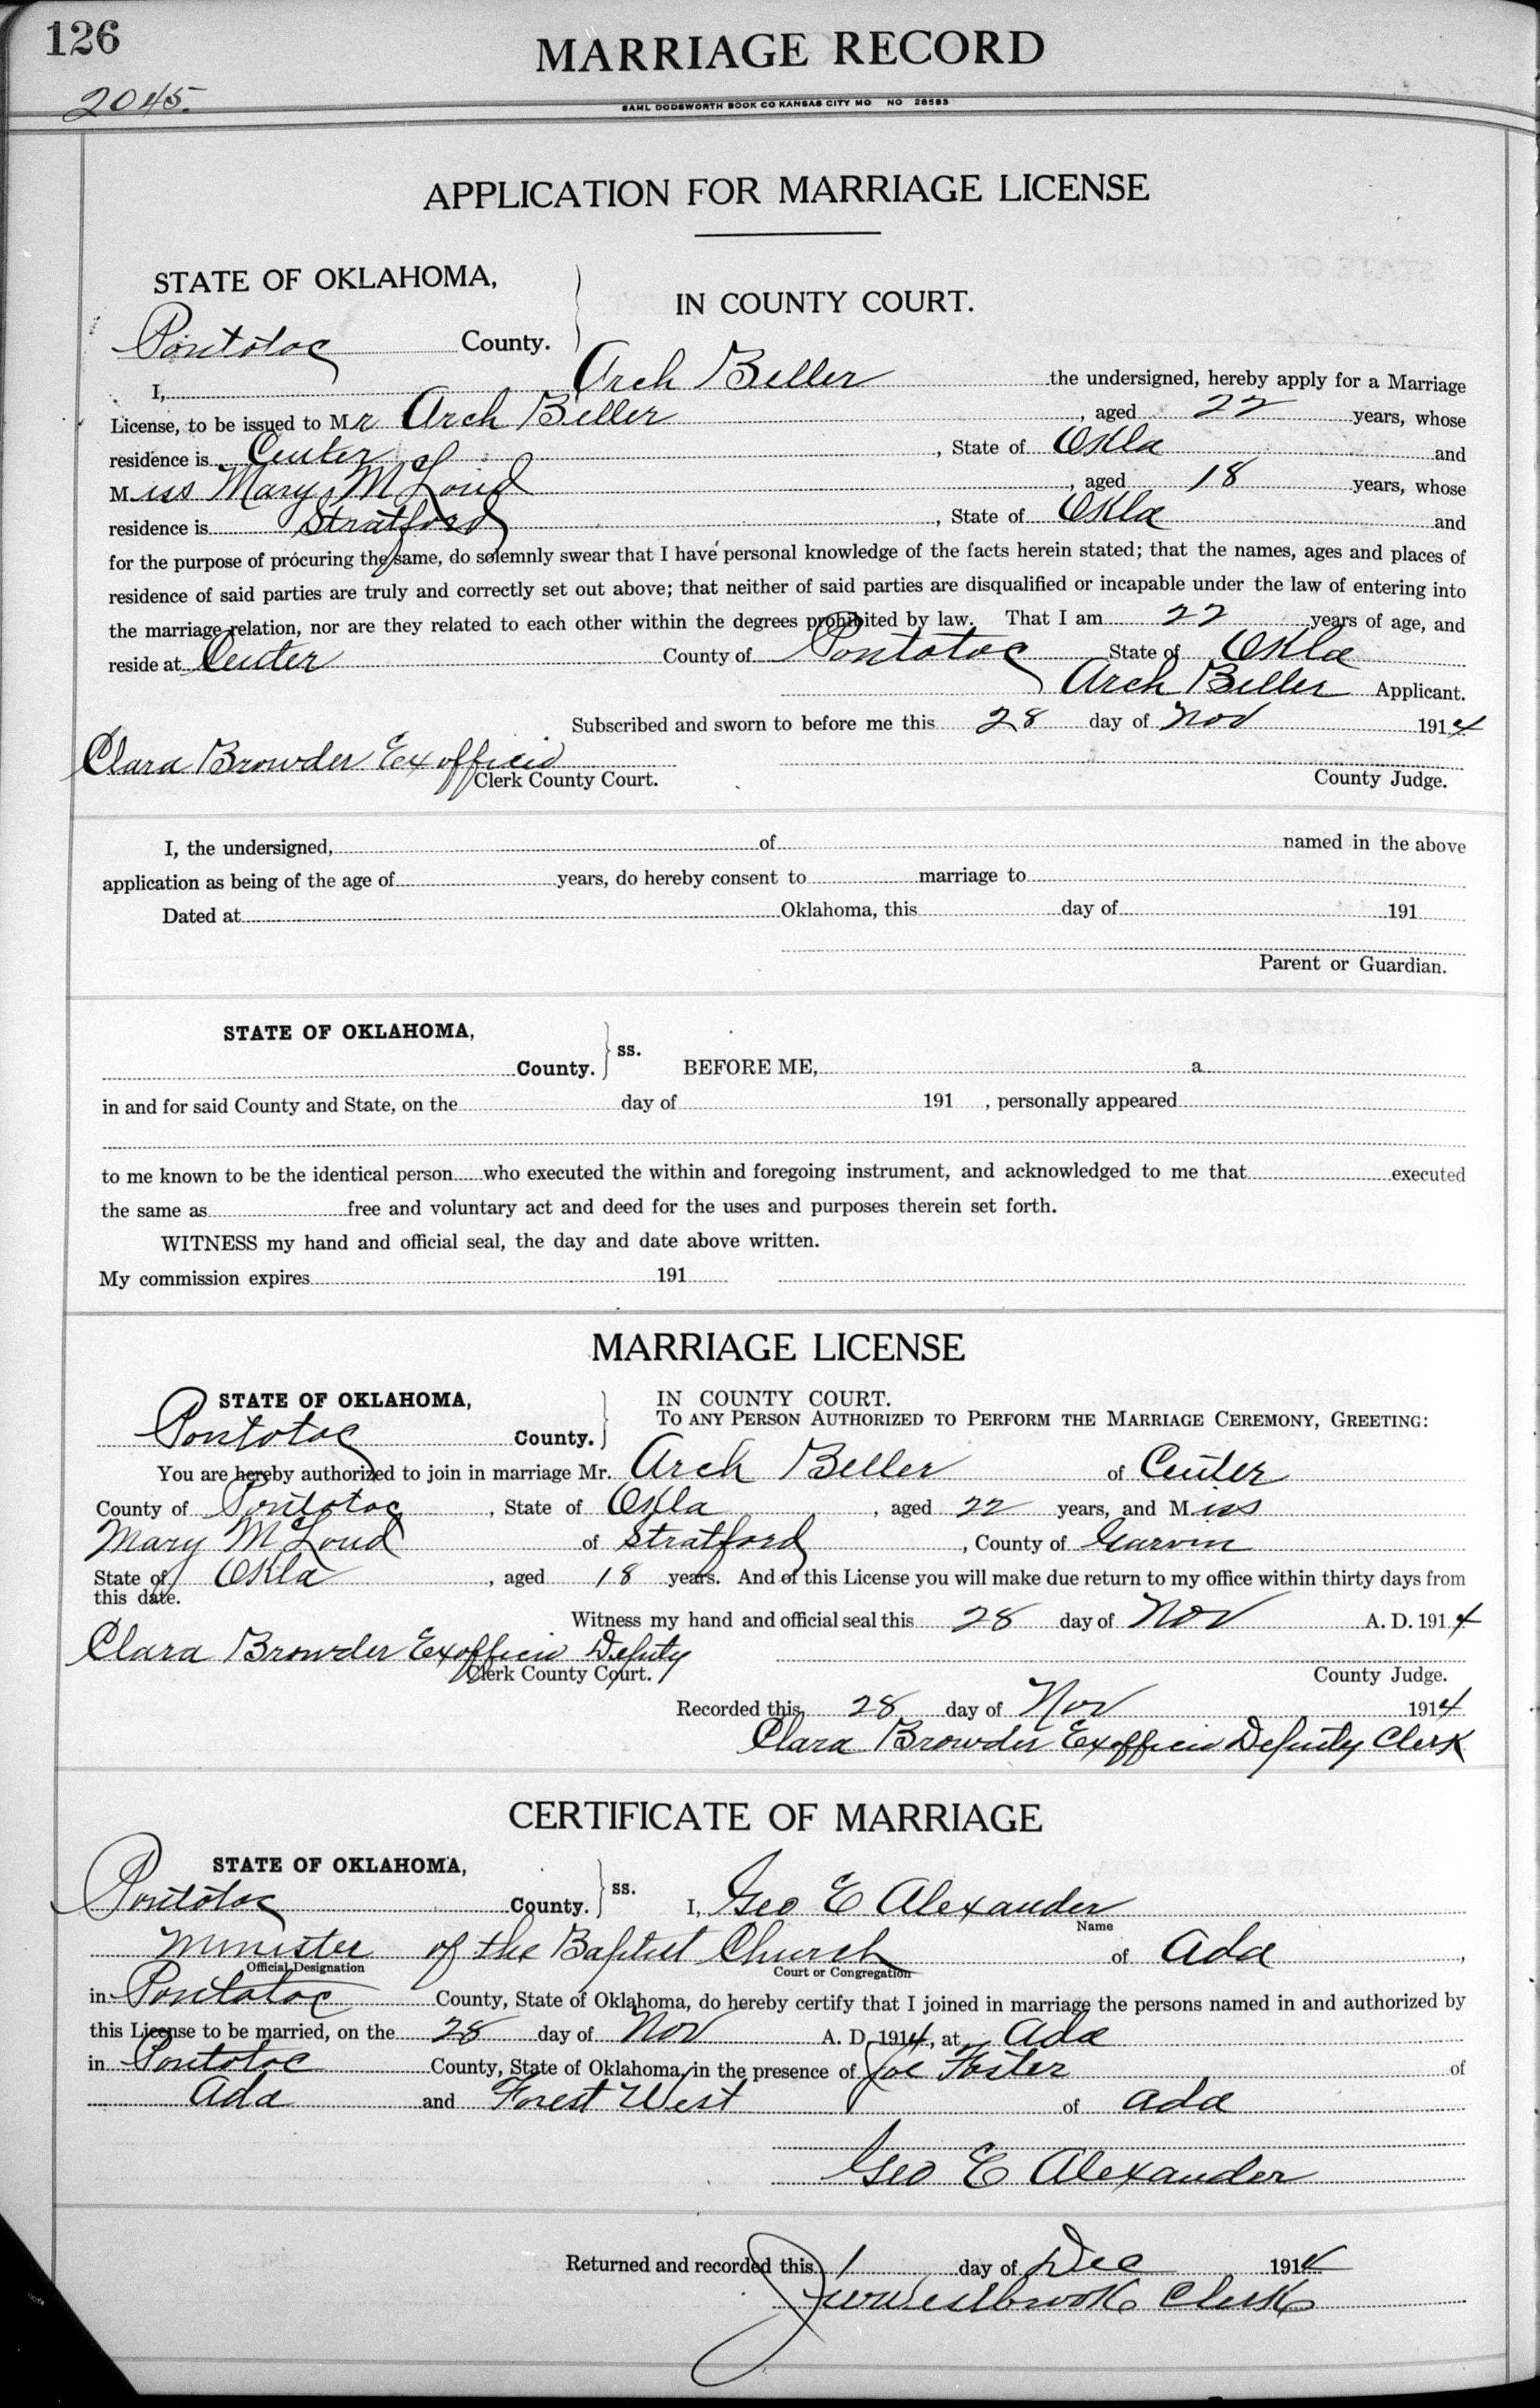 126
MARRIAGE RECORD
2045.
SAML DODSWORTH BOOK CO KANSAS CITY MO NO 28583
APPLICATION FOR MARRIAGE LICENSE
STATE OF OKLAHOMA,
IN COUNTY COURT.
Pontotoc County.
I, Arch Beller the undersigned, hereby apply for a Marriage
License, to be issued to Mr Arch Beller, aged 22 years, whose
residence is Center, State of Okla and
Miss Mary McLoud, aged 18 years, whose
residence is Stratford, State of Okla and
for the purpose of procuring the same, do solemnly swear that I have personal knowledge of the facts herein stated; that the names, ages and places of
residence of said parties are truly and correctly set out above; that neither of said parties are disqualified or incapable under the law of entering into
the marriage relation, nor are they related to each other within the degrees prohibited by law. That I am 22 years of age, and
reside at Center County of Pontotoc State of Okla
Arch Beller Applicant.
Subscribed and sworn to before me this 28 day of Nov 1914
Clara Browder Exofficio
Clerk County Court. County Judge.
I, the undersigned, of named in the above
application as being of the age of years, do hereby consent to marriage to
Dated at Oklahoma, this day of 191
Parent or Guardian.
STATE OF OKLAHOMA,
County. ss. BEFORE ME, a
in and for said County and State, on the day of 191 , personally appeared
to me known to be the identical person who executed the within and foregoing instrument, and acknowledged to me that executed
the same as free and voluntary act and deed for the uses and purposes therein set forth.
WITNESS my hand and official seal, the day and date above written.
My commission expires 191
MARRIAGE LICENSE
STATE OF OKLAHOMA, IN COUNTY COURT.
TO ANY PERSON AUTHORIZED TO PERFORM THE MARRIAGE CEREMONY, GREETING:
Pontotoc County.
You are hereby authorized to join in marriage Mr. Arch Beller of Center
County of Pontotoc, State of Okla, aged 22 years, and Miss
Mary McLoud of Stratford, County of Garvin
State of Okla, aged 18 years. And of this License you will make due return to my office within thirty days from
this date.
Witness my hand and official seal this 28 day of Nov A. D. 1914
Clara Browder Exofficio Deputy
Clerk County Court. County Judge.
Recorded this 28 day of Nov 1914
Clara Browder Exofficio Deputy Clerk
CERTIFICATE OF MARRIAGE
STATE OF OKLAHOMA,
Pontotoc County. ss. I, Geo E Alexander
Name
Minister of the Baptist Church of Ada,
Official Designation Court or Congregation
in Pontotoc County, State of Oklahoma, do hereby certify that I joined in marriage the persons named in and authorized by
this License to be married, on the 28 day of Nov A. D. 1914, at Ada
in Pontotoc County, State of Oklahoma, in the presence of Joe Foster of
Ada and Forest West of Ada
Geo E Alexander
Returned and recorded this 1 day of Dec 1914
Clerk